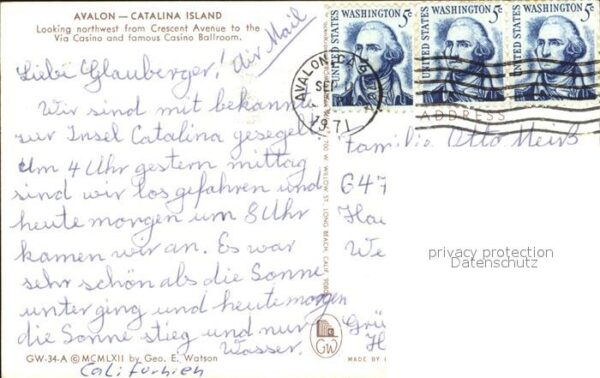 AVALON — CATALINA ISLAND
Looking northwest from Crescent Avenue to the
Via Casino and famous Casino Ballroom.
Air Mail
Liebe Glauberger!
Wir sind mit bekannte
zur Insel Catalina gesegelt
Um 4 Uhr gestern mittag
sind wir los gefahren und
heute morgen um 8 Uhr
kamen wir an. Es war
sehr schön als die Sonne
unterging und heute morgen
die Sonne stieg und nur
Wasser.
GW-34-A © MCMLXII by Geo. E. Watson
Californien
UNITED STATES WASHINGTON 5c
UNITED STATES WASHINGTON 5c
UNITED STATES WASHINGTON 5c
AVALON, CA
SEP
1971
ADDRESS
Familie Otto
647
Hau
We
Grü
H
700 W. WILLOW ST. LONG BEACH, CALIF.
GW
MADE BY
privacy protection
Datenschutz